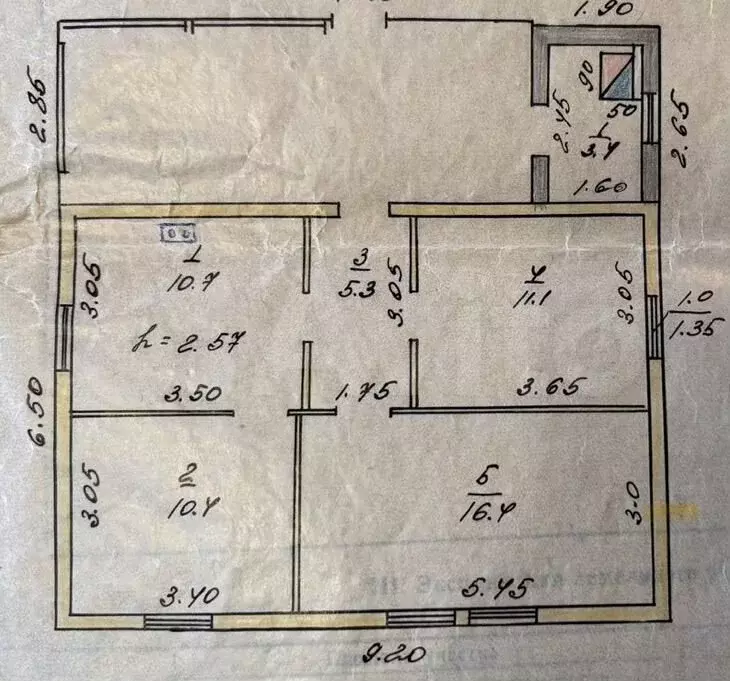 1.90
2.85
90
50
2.45
1
3.4
2.65
1.60
1
10.7
3.05
3
5.3
3.05
4
11.1
3.05
1.0
1.35
h = 2.57
3.50
1.75
3.65
6.50
2
10.4
3.05
5
16.4
3.0
3.40
5.45
9.20